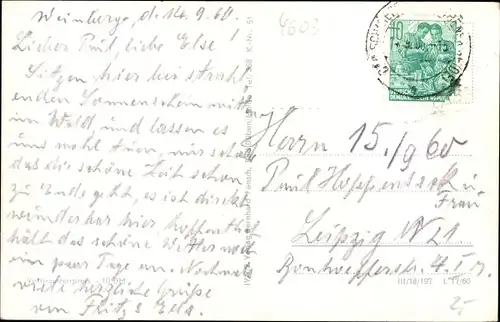 Weinberge, d. 14.9.60.
Lieber Paul, liebe Else!
Sitzen hier bei strahl
enden Sonnenschein mitte
im Wald, und lassen es
uns wohl tun, nur schade
das die schöne Zeit schon
zu Ende geht, es ist direkt
wunderbar hier hoffentlich
hält das schöne Wetter noch
ein paar Tage an. Nochmals
viele herzliche Grüße
von Fritz &
4603
10
15./9 60
Herrn
Paul u
Frau
Leipzig N21
4. I. r.
III/18/197 L 17/60